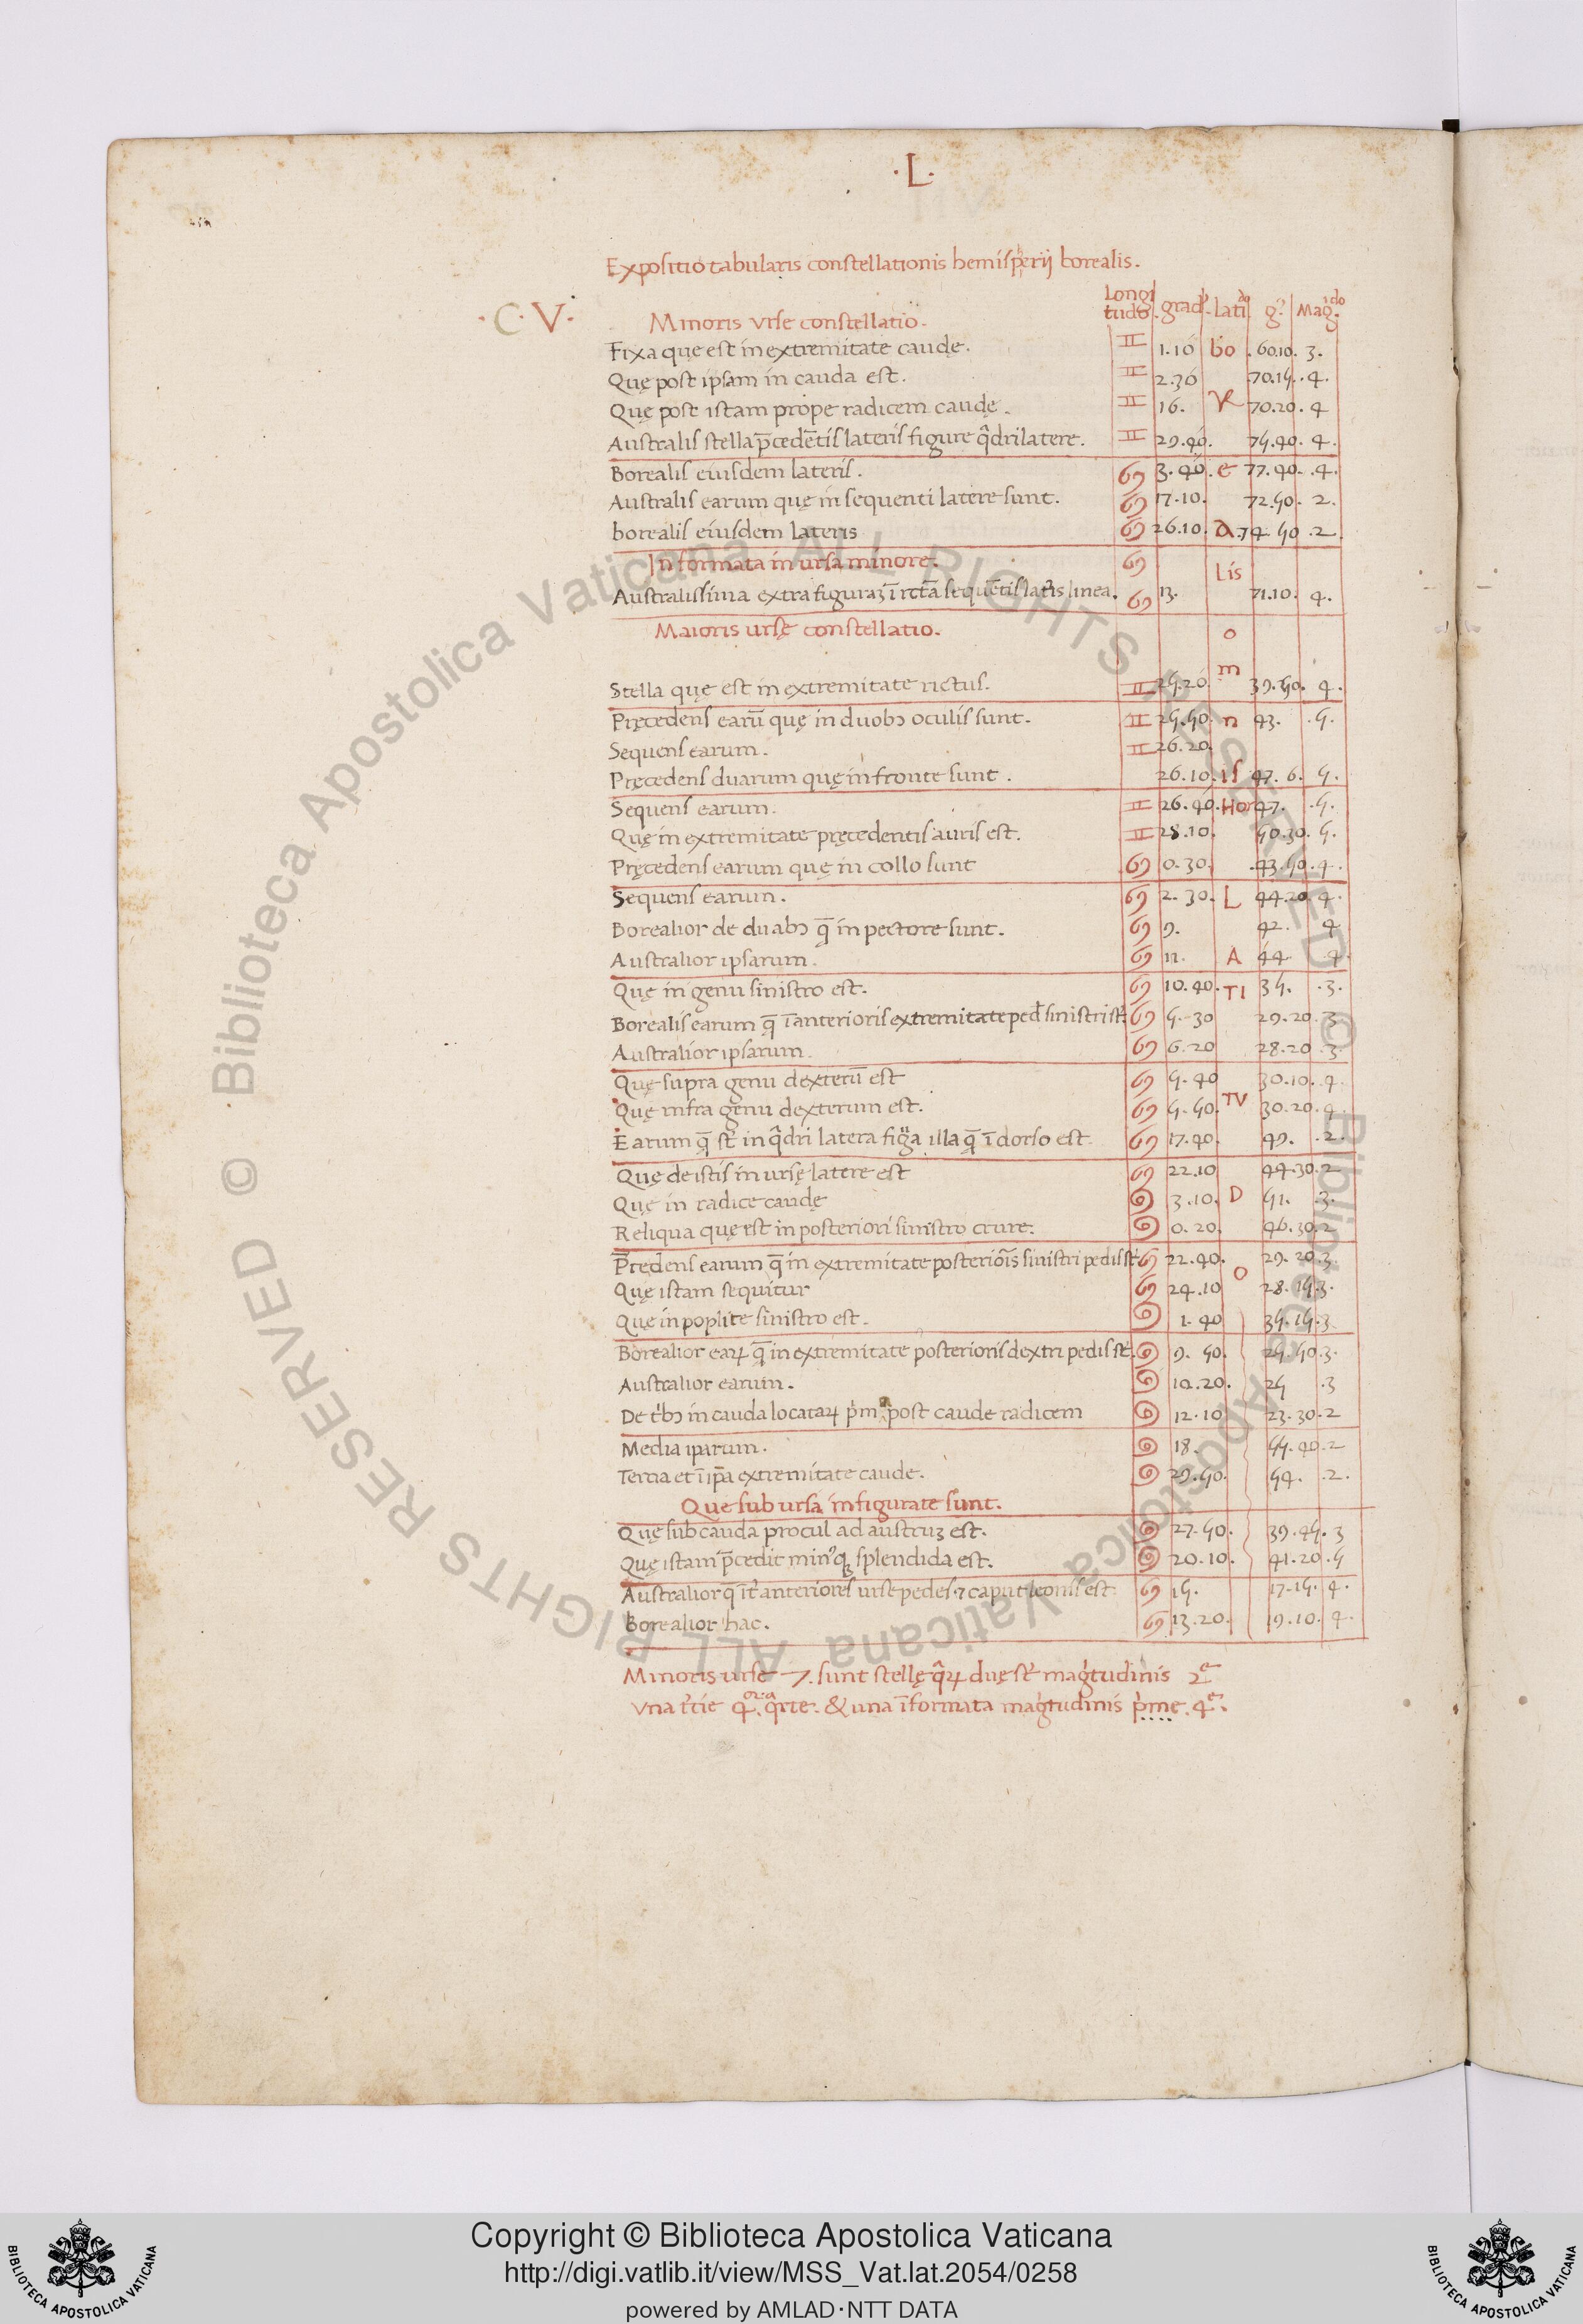 ·L·
Expositio tabularis constellationis hemispherij borealis.
·C·V·
Longitudo. grad9. latido g? Magido.
Minoris vrse constellatio.
Fixa que est in extremitate caude. ♊ 1.10 bo .60.10. 3.
Quę post ipsam in cauda est. ♊ 2.30 70.15. .4.
Quę post istam prope radicem caudę. ♊ 16. R 70.20. 4
Australis stella p̄cedētis lateris figure qͣdrilatere. ♊ 29.40. 75.40. 4.
Borealis eiusdem lateris. ♋ 3.40. e 77.40. .4.
Australis earum quę in sequenti latere sunt. ♋ 17.10. 72.50. 2.
borealis eiusdem lateris ♋ 26.10. A .74.50 .2
Informata in ursa minore. ♋
Lis
Australissima extra figuraꝫ ī rctā sequētis latis linea. ♋ 13. 71.10. 4.
Maioris ursę constellatio. o
m
Stella quę est in extremitate rictus. ♊ 25.20. 39.50. 4.
Pręcedens earū quę in duobꝫ oculis sunt. ♊ 25.50. n 43. .5.
Sequens earum. ♊ 26.20.
Pręcedens duarum quę in fronte sunt. 26.10. is 47.6. 5.
Sequens earum. ♊ 26.40. Hor 47. .5.
Quę in extremitate pręcedentis auris est. ♊ 28.10. 50.30. 5.
Pręcedens earum quę in collo sunt ♋ 0.30. .43.50.4.
Sequens earum. ♋ 2.30. L 44.20.4.
Borealior de duabꝫ q̄ in pectore sunt. ♋ 9. 42. 4
Australior ipsarum. ♋ 11. A 44. .4.
Quę in genu sinistro est. ♋ 10.40. TI 35. .3.
Borealis earum q̄ ī anterioris extremitate ped sinistri st. ♋ 5.30 29.20.3
Australior ipsarum. ♋ 6.20 28.20.3.
Quę supra genu dexterū est ♋ 5.40 30.10.4.
TV
Quę infra genu dexterum est. ♋ 5.50. 30.20.4.
Earum q̄ st in qͣdri latera figͣa illa q̄ ī dorso est. ♋ 17.40. 49. .2.
Quę de istis in ursę latere est ♋ 22.10 44.30.2
Quę in radice caudę ♌ 3.10. D 51. .3.
Reliqua quę est in posteriori sinistro crure. ♌ 0.20. 46.30.2
P̄cedens earum q̄ in extremitate posteriōis sinistri pedis st ♋ 22.40. 29.20.3
O
Quę istam sequitur ♋ 24.10 28.15.3.
Quę in poplite sinistro est. ♌ 1.40 35.15.3
Borealior eaꝝ q̄ in extremitate posterioris dextri pedis st. ♌ 9.50. 25.50.3.
Australior earum. ♌ 10.20. 25 .3
De tͥbꝫ in cauda locataꝝ pͥma post caude radicem ♌ 12.10 53.30.2
Media iparum. ♌ 18. 55.40.2
Tercia et ī ip̄a extremitate caude. ♌ 29.50. 54. .2.
Que sub ursa infigurate sunt.
Quę sub cauda procul ad austruꝫ est. ♌ 27.50. 39.45.3
Quę istam p̄cedit min9qꝫ splendida est. ♌ 20.10. 41.20.5
Australior q̄ īt anteriores urse pedes ⁊ caput leonis est. ♋ 15. 17.15.4.
Borealior hac. ♋ 13.20. 19.10.4.
Minoris urse 7. sunt stellę qͣꝝ duę st magͥtudinis 2ę
vna tͥcie 4or. qͣrte. & una īformata magͥtudinis pͥme. 4ę.
Copyright © Biblioteca Apostolica Vaticana
http://digi.vatlib.it/view/MSS_Vat.lat.2054/0258
powered by AMLAD·NTT DATA
BIBLIOTECA APOSTOLICA VATICANA
BIBLIOTECA APOSTOLICA VATICANA
© Biblioteca Apostolica Vaticana ALL RIGHTS RESERVED © Biblioteca Apostolica Vaticana ALL RIGHTS RESERVED